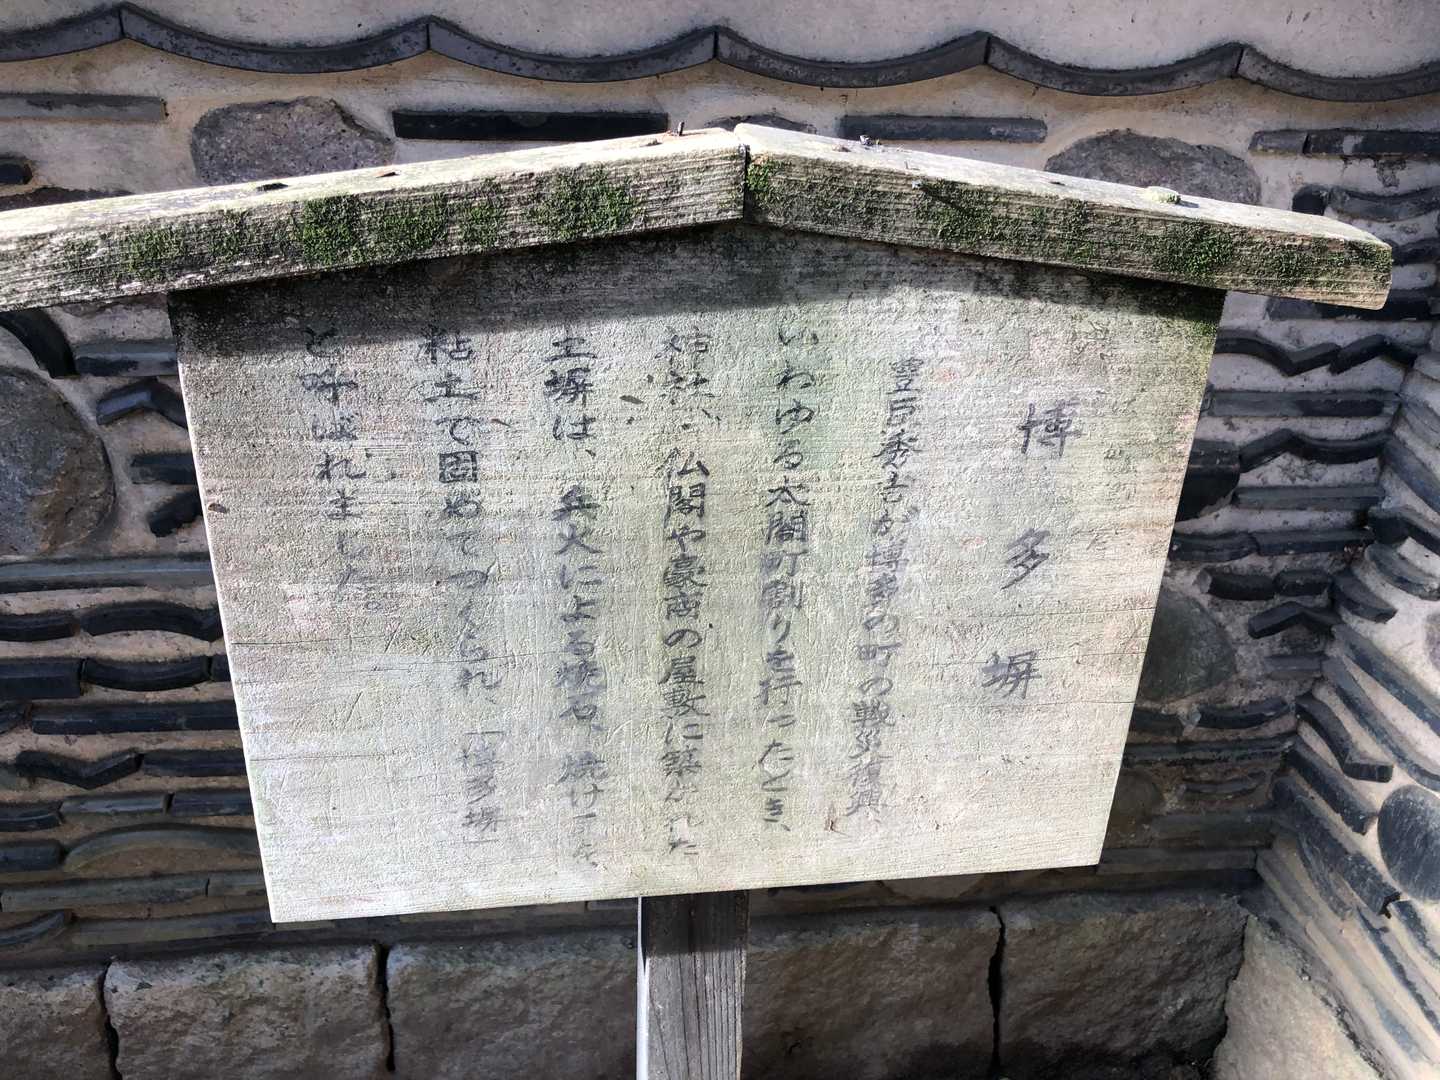 博多塀
豊臣秀吉が博多の町の戦災復興
いわゆる太閤町割りを行ったとき、
神社・仏閣や豪商の屋敷に築かれた
土塀は、兵火による焼石、焼け瓦を
粘土で固めてつくられ、「博多塀」
と呼ばれました。